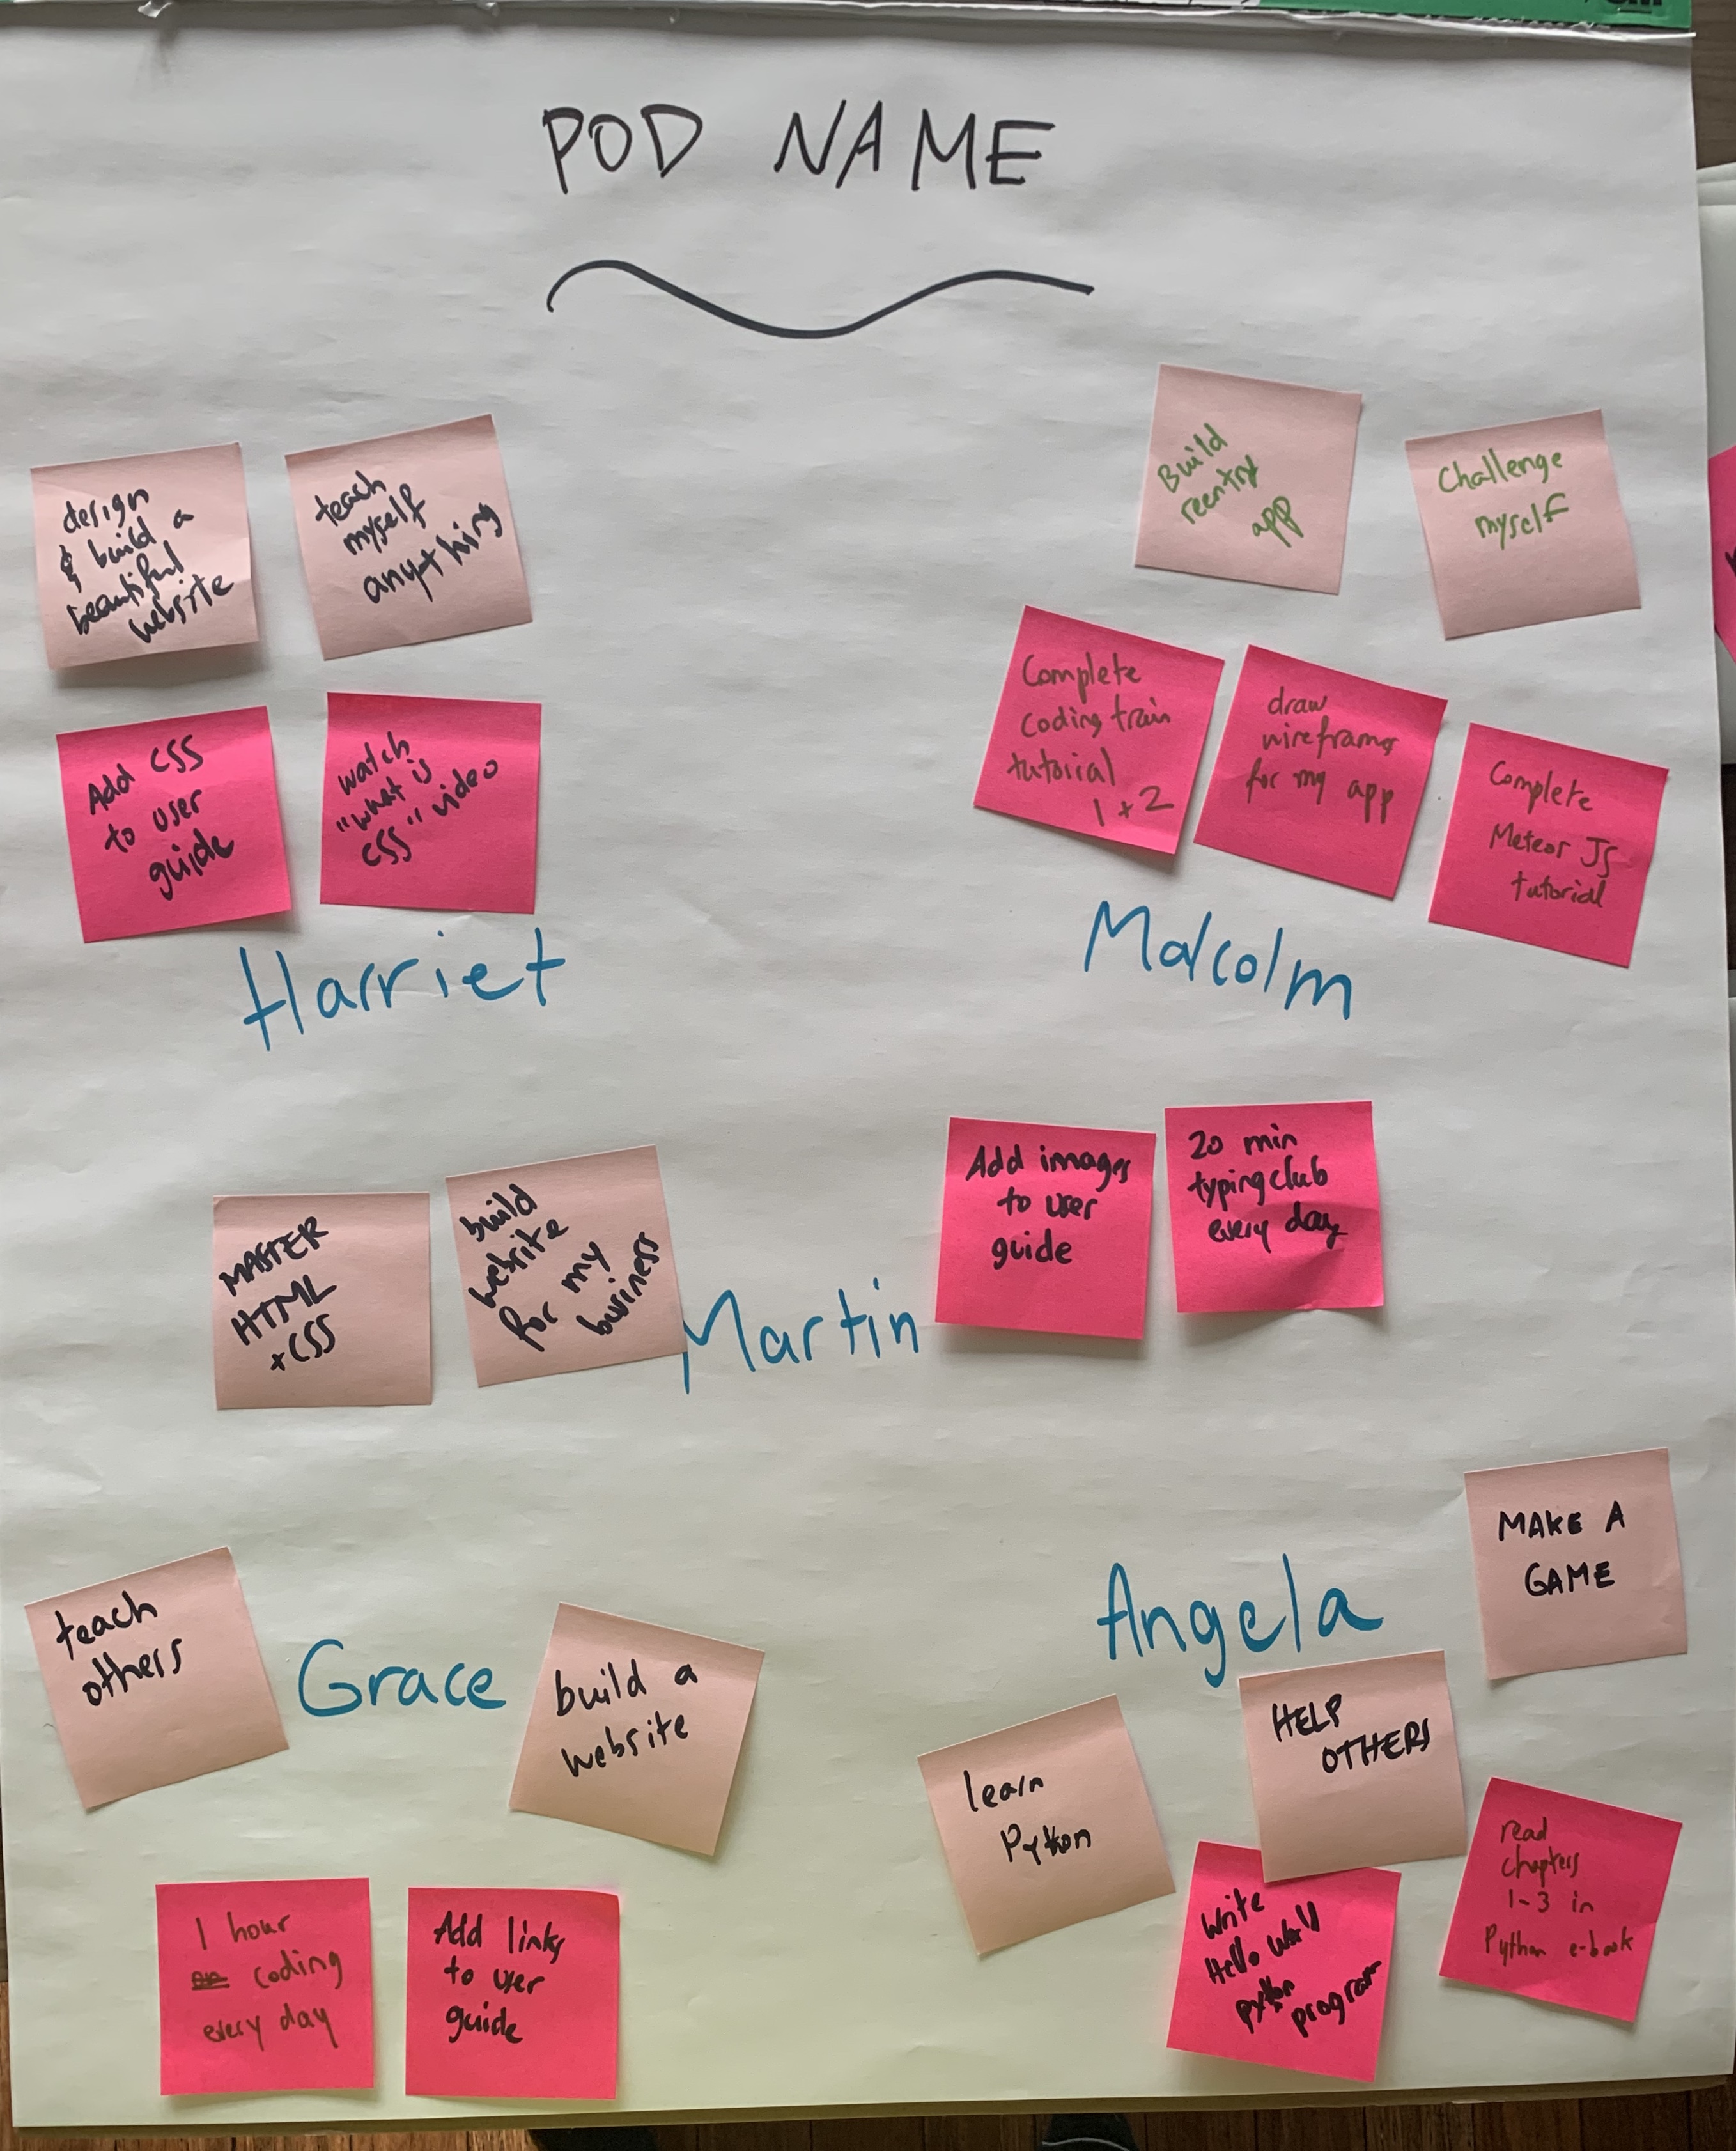 POD NAME
design
& build a
beautiful
website
teach
myself
anything
Add CSS
to user
guide
watch
"what is
CSS" video
Harriet
Build
reentry
app
Challenge
myself
Complete
coding train
tutorial
1 + 2
draw
wireframes
for my app
Complete
Meteor JS
tutorial
Malcolm
MASTER
HTML
+ CSS
build
website
for my
business
Martin
Add images
to user
guide
20 min
typingclub
every day
teach
others
Grace
build a
website
1 hour
coding
every day
Add links
to user
guide
Angela
MAKE A
GAME
learn
Python
HELP
OTHERS
write
Hello World
python
program
read
chapters
1-3 in
Python e-book